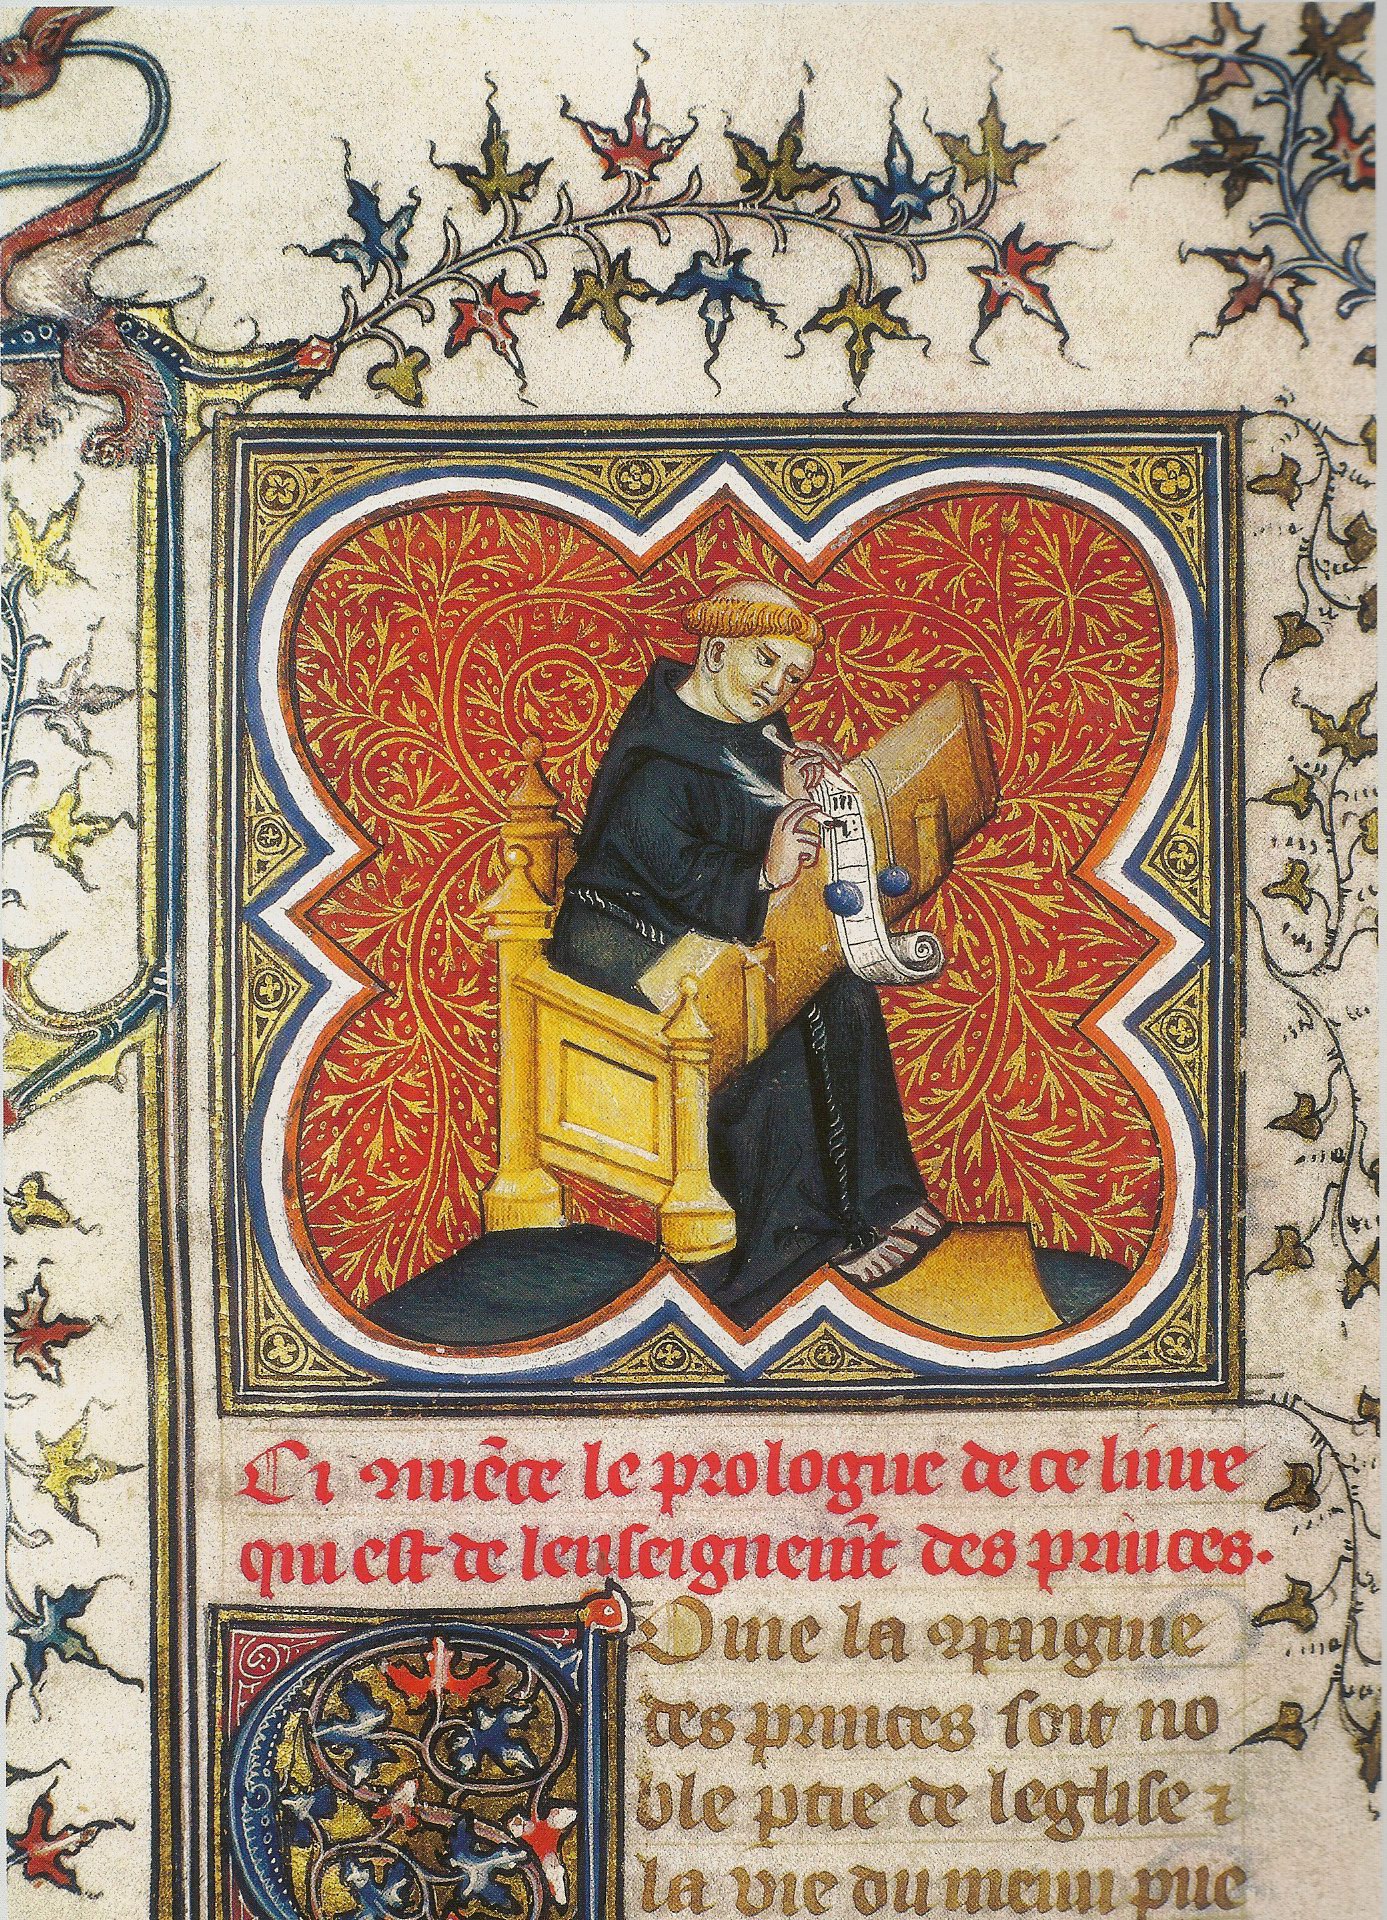 Ci ꝯmẽce le prologue de ce liure
qui est de lenseignem̃t des princes.
COme la ꝯpaignie
des princes soit no
ble ptie de leglise ⁊
la vie du menu pue